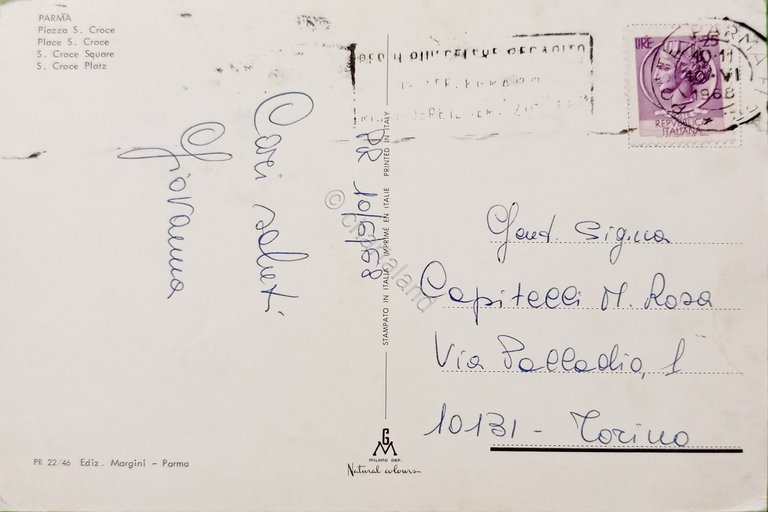 PARMA
Piazza S. Croce
Place S. Croce
S. Croce Square
S. Croce Platz
LIRE 25
REPVBBLICA
ITALIANA
PARMA
10-11
10·VI
1968
PR 10/6/68
Cari saluti
Giovanna
STAMPATO IN ITALIA IMPRIMÉ EN ITALIE PRINTED IN ITALY
© cartoaland
Gent Sig.na
Capitelli M. Rosa
Via Palladio, 1
10131 - Torino
PR 22/46 Ediz. Margini - Parma
GM
MILANO DEP.
Natural colours